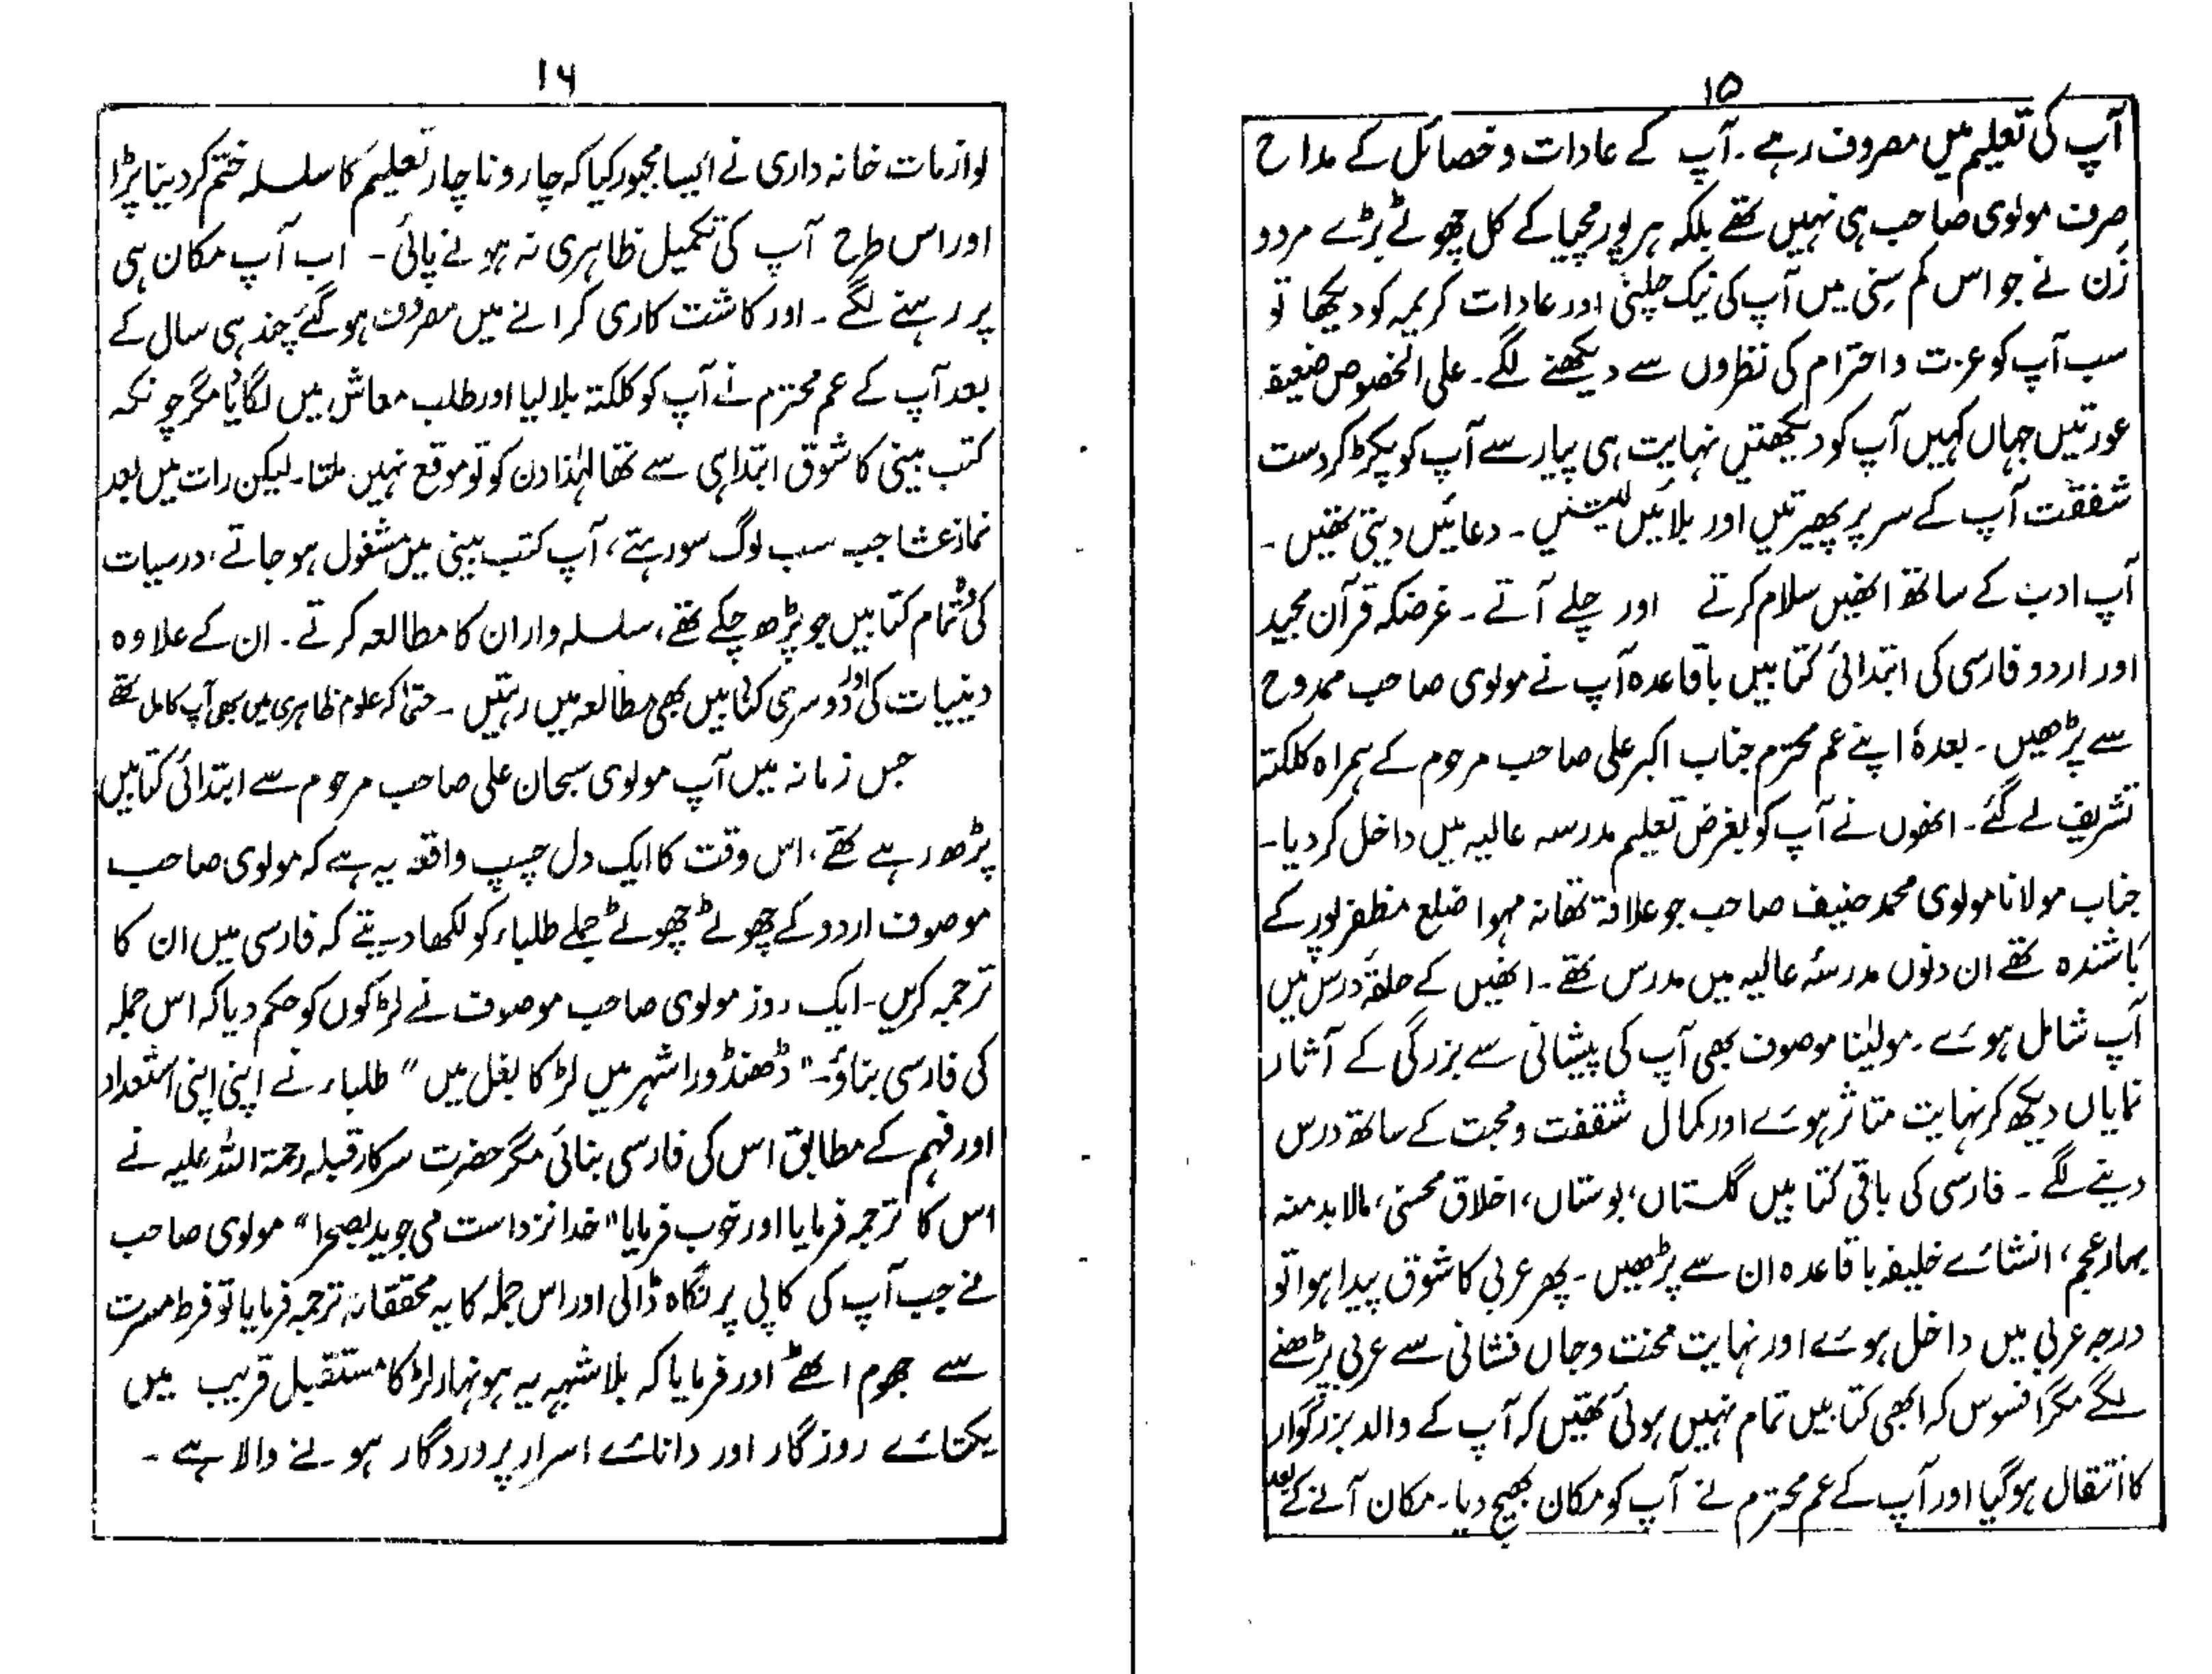 ۱۵
آپ کی تعلیم میں مصروف رہے۔ آپ کے عادات و خصائل کے مداح
صرف مولوی صاحب ہی نہیں تھے بلکہ ہرپور مچیا کے کل چھوٹے بڑے مرد و
زن نے جو اس کم سِنی میں آپ کی نیک چلینی اور عادات کریمہ کو دیکھا تو
سب آپ کو عزت و احترام کی نظروں سے دیکھنے لگے۔ علی الخصوص ضعیفہ
عورتیں جہاں کہیں آپ کو دیکھتیں نہایت ہی پیار سے آپ کو پکڑ کر دست
شفقت آپ کے سر پر پھیرتیں اور بلائیں لیتیں۔ دعائیں دیتی تھیں۔
آپ ادب کے ساتھ انھیں سلام کرتے اور چلے آتے۔ غرضکہ قرآن مجید
اور اردو فارسی کی ابتدائی کتابیں باقاعدہ آپ نے مولوی صاحب ممدوح
سے پڑھیں۔ بعدہٗ اپنے عم محترم جناب اکبر علی صاحب مرحوم کے ہمراہ کلکتہ
تشریف لے گئے۔ انھوں نے آپ کو بغرض تعلیم مدرسہ عالیہ میں داخل کر دیا۔
جناب مولانا مولوی محمد حنیف صاحب جو علاقہ تھانہ مہوا ضلع مظفرپور کے
باشندہ تھے ان دنوں مدرسۂ عالیہ میں مدرس تھے۔ انھیں کے حلقۂ درس میں
آپ شامل ہوئے۔ مولینٰا موصوف بھی آپ کی پیشانی سے بزرگی کے آثار
نمایاں دیکھ کر نہایت متاثر ہوئے اور کمال شفقت و محبت کے ساتھ درس
دینے لگے۔ فارسی کی باقی کتابیں گلستاں، بوستاں، اخلاق محسنی، مالابدمنہ
بہار عجم، انشائے خلیفہ باقاعدہ ان سے پڑھیں۔ پھر عربی کا شوق پیدا ہوا تو
درجہ عربی میں داخل ہوئے اور نہایت محنت و جاں فشانی سے عربی پڑھنے
لگے مگر افسوس کہ ابھی کتابیں تمام نہیں ہوئی تھیں کہ آپ کے والد بزرگوار
کا انتقال ہوگیا اور آپ کے عم محترم نے آپ کو مکان بھیج دیا۔ مکان آنے کے بعد
۱۶
لوازمات خانہ داری نے ایسا مجبور کیا کہ چار و ناچار تعلیم کا سلسلہ ختم کر دینا پڑا
اور اس طرح آپ کی تکمیل ظاہری نہ ہونے پائی۔ اب آپ مکان ہی
پر رہنے لگے۔ اور کاشت کاری کرانے میں مصروف ہوگئے چند ہی سال کے
بعد آپ کے عم محترم نے آپ کو کلکتہ بلا لیا اور طلب معاش میں لگایا مگر چونکہ
کتب بینی کا شوق ابتدا ہی سے تھا لہٰذا دن کو تو موقع نہیں ملتا۔ لیکن رات میں بعد
نماز عشا جب سب لوگ سو رہتے، آپ کتب بینی میں مشغول ہو جاتے، درسیات
کی وہ تمام کتابیں جو پڑھ چکے تھے، سلسلہ وار ان کا مطالعہ کرتے۔ ان کے علاوہ
دینیات کی اور دوسری کتابیں بھی مطالعہ میں رہتیں۔ حتیٰ کہ علوم ظاہری میں بھی آپ کامل تھے
جس زمانہ میں آپ مولوی سبحان علی صاحب مرحوم سے ابتدائی کتابیں
پڑھ رہے تھے، اس وقت کا ایک دل چسپ واقعہ یہ ہے کہ مولوی صاحب
موصوف اردو کے چھوٹے چھوٹے جملے طلباء کو لکھا دیتے کہ فارسی میں ان کا
ترجمہ کریں۔ ایک روز مولوی صاحب موصوف نے لڑکوں کو حکم دیا کہ اس جملہ
کی فارسی بناؤ۔ "ڈھنڈورا شہر میں لڑکا بغل میں" طلباء نے اپنی اپنی استعداد
اور فہم کے مطابق اس کی فارسی بنائی مگر حضرت سرکار قبلہ رحمۃ اللہ علیہ نے
اس کا ترجمہ فرمایا اور خوب فرمایا "خدا نزد است می جوید بصحرا" مولوی صاحب
نے جب آپ کی کاپی پر نگاہ ڈالی اور اس جملہ کا یہ محققانہ ترجمہ فرمایا تو فرط مسرت
سے جھوم اٹھے اور فرمایا کہ بلاشبہہ یہ ہونہار لڑکا مستقبل قریب میں
یکتائے روزگار اور دانائے اسرار پروردگار ہونے والا ہے۔